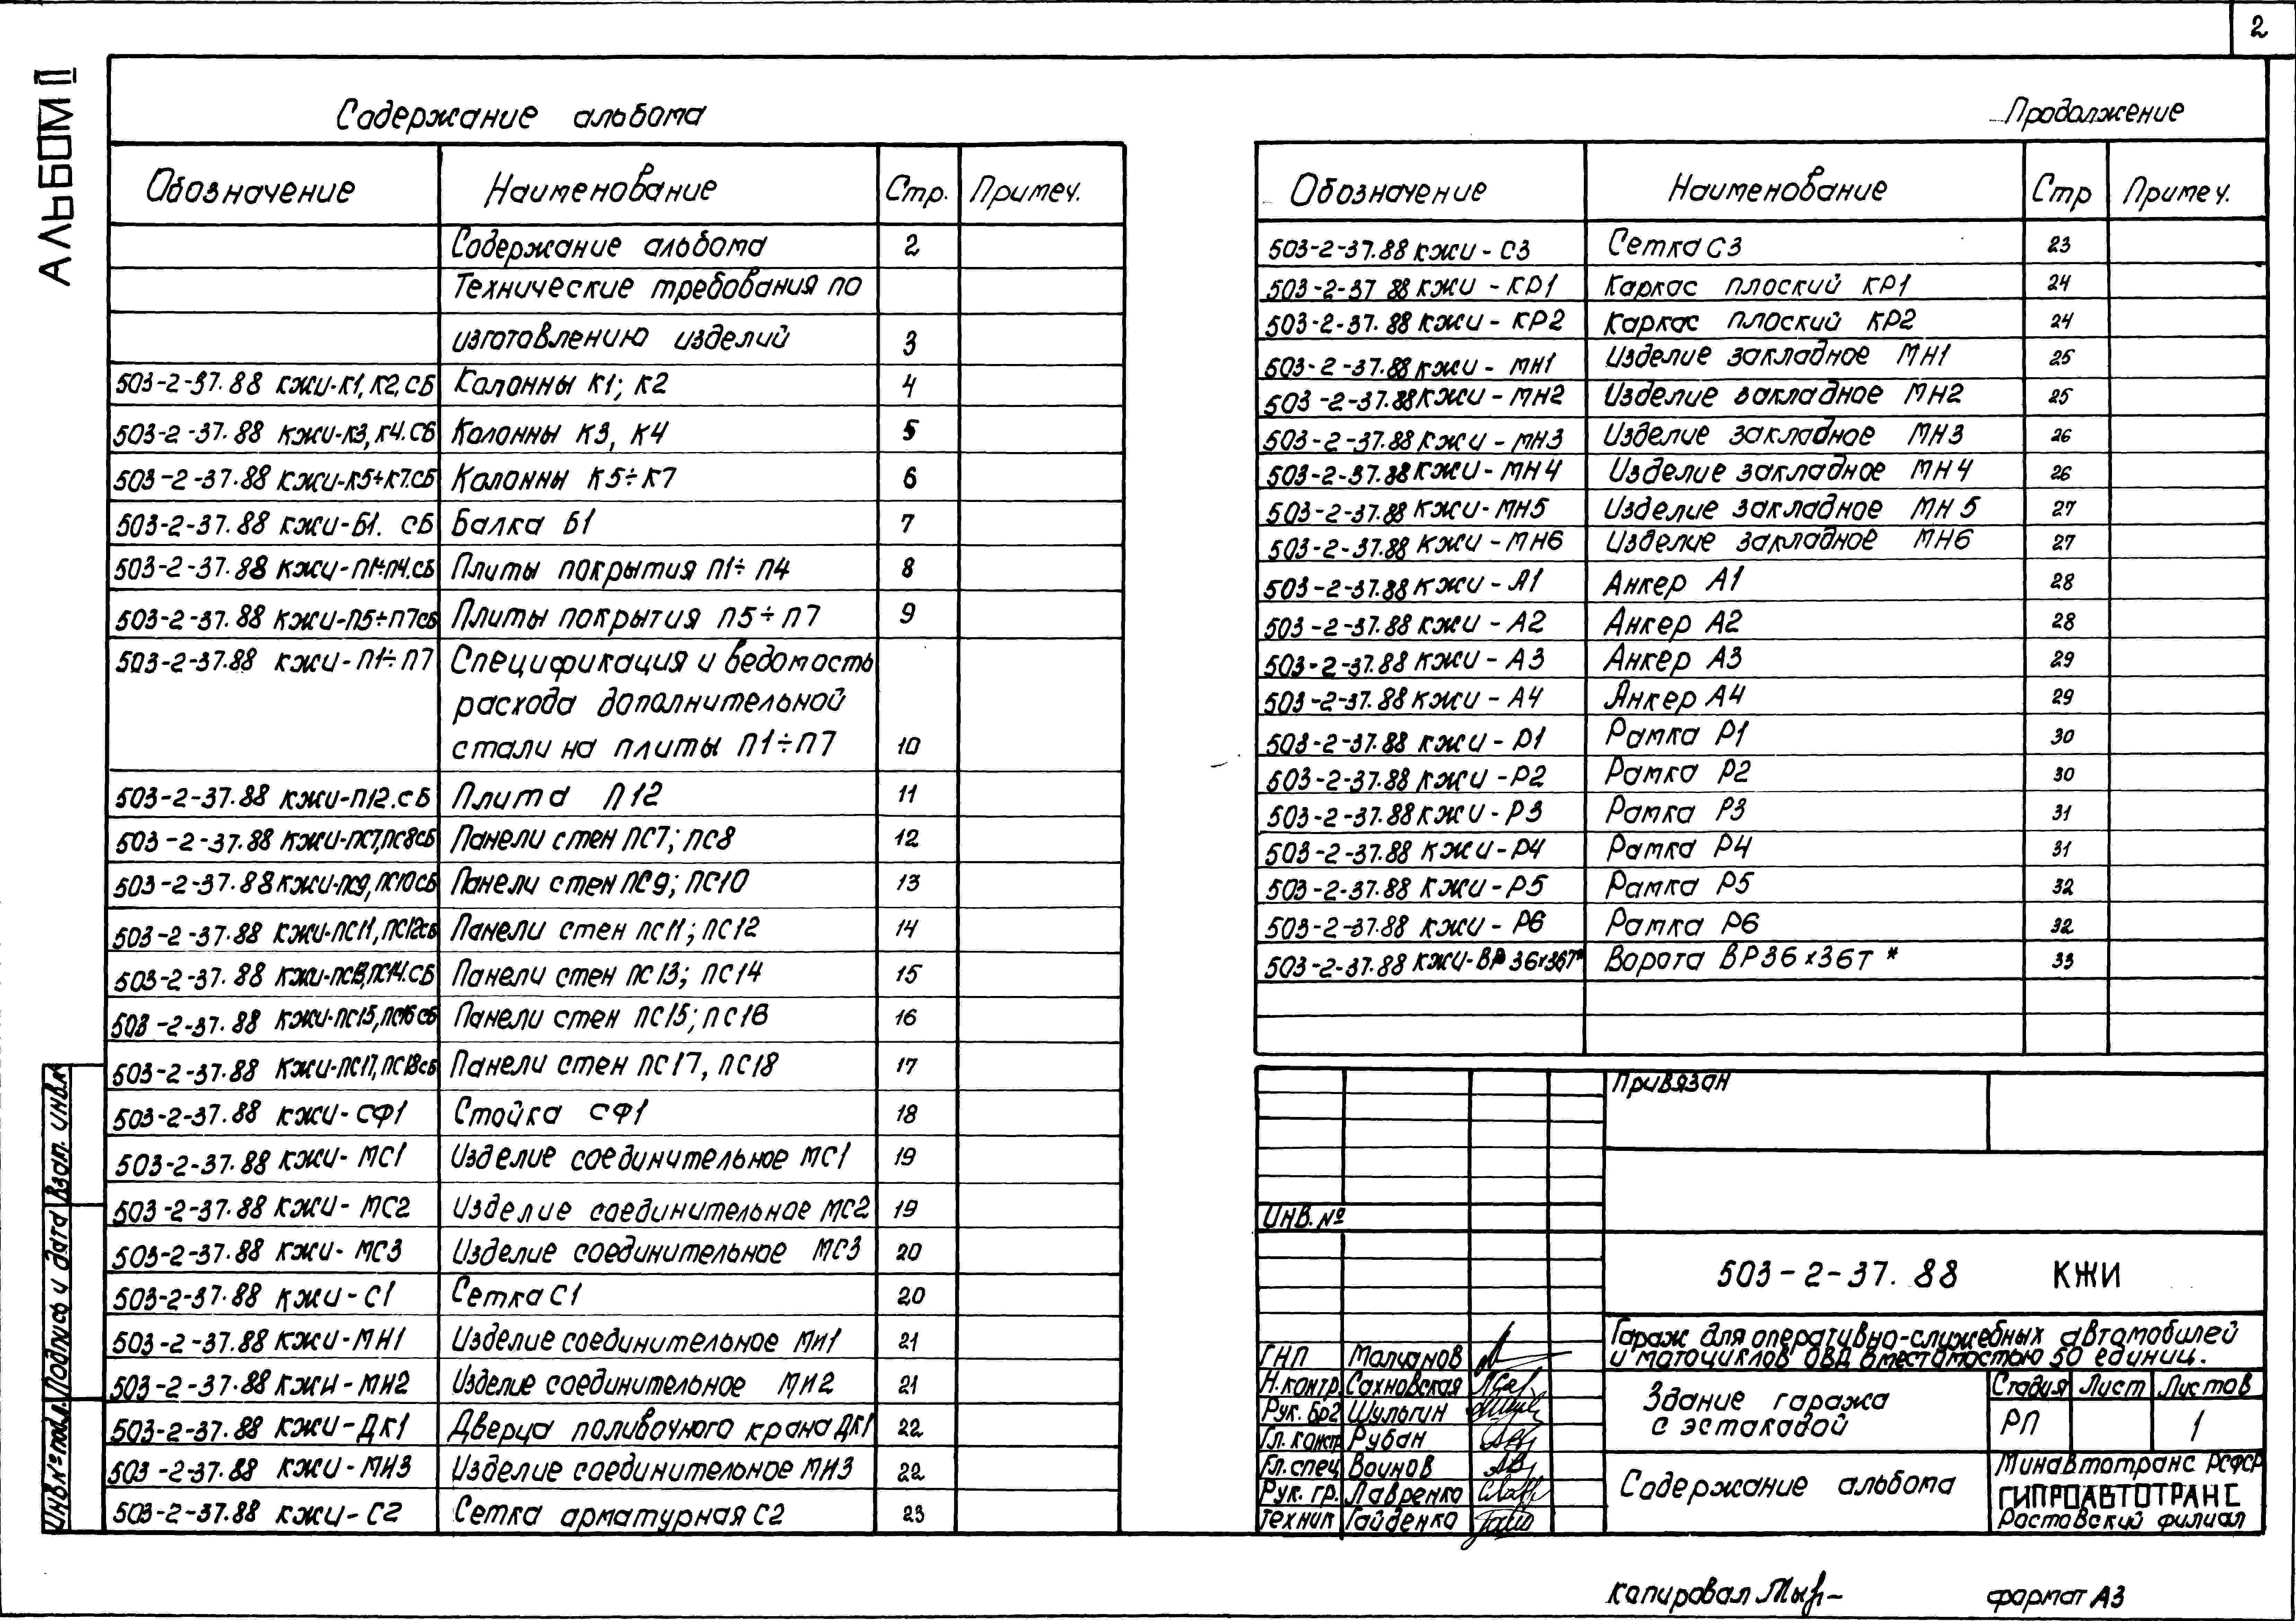 2
АЛЬБОМ II
Содержание альбома
Обозначение Наименование Стр. Примеч.
Содержание альбома 2
Технические требования по
изготовлению изделий 3
503-2-37.88 КЖИ-К1, К2, СБ Колонны К1; К2 4
503-2-37.88 КЖИ-К3, К4.СБ Колонны К3, К4 5
503-2-37.88 КЖИ-К5÷К7.СБ Колонны К5÷К7 6
503-2-37.88 КЖИ-Б1. СБ Балка Б1 7
503-2-37.88 КЖИ-П1÷П4.СБ Плиты покрытия П1÷ П4 8
503-2-37.88 КЖИ-П5÷П7СБ Плиты покрытия П5÷ П7 9
503-2-37.88 КЖИ-П1÷П7 Спецификация и ведомость
расхода дополнительной
стали на плиты П1÷П7 10
503-2-37.88 КЖИ-П12.СБ Плита П12 11
503-2-37.88 КЖИ-ПС7,ПС8СБ Панели стен ПС7; ПС8 12
503-2-37.88 КЖИ-ПС9, ПС10СБ Панели стен ПС9; ПС10 13
503-2-37.88 КЖИ-ПС11, ПС12СБ Панели стен ПС11; ПС12 14
503-2-37.88 КЖИ-ПС13,ПС14.СБ Панели стен ПС13; ПС14 15
503-2-37.88 КЖИ-ПС15,ПС16 СБ Панели стен ПС15; ПС16 16
503-2-37.88 КЖИ-ПС17, ПС18СБ Панели стен ПС17, ПС18 17
503-2-37.88 КЖИ-СФ1 Стойка СФ1 18
503-2-37.88 КЖИ-МС1 Изделие соединительное МС1 19
503-2-37.88 КЖИ-МС2 Изделие соединительное МС2 19
503-2-37.88 КЖИ-МС3 Изделие соединительное МС3 20
503-2-37.88 КЖИ-С1 Сетка С1 20
503-2-37.88 КЖИ-МН1 Изделие соединительное МИ1 21
503-2-37.88 КЖИ-МИ2 Изделие соединительное МИ2 21
503-2-37.88 КЖИ-ДК1 Дверца поливочного крана ДК1 22
503-2-37.88 КЖИ-МИ3 Изделие соединительное МИ3 22
503-2-37.88 КЖИ-С2 Сетка арматурная С2 23
Продолжение
Обозначение Наименование Стр Примеч.
503-2-37.88 КЖИ-С3 Сетка С3 23
503-2-37 88 КЖИ-КР1 Каркас плоский КР1 24
503-2-37.88 КЖИ-КР2 Каркас плоский КР2 24
503-2-37.88 КЖИ-МН1 Изделие закладное МН1 25
503-2-37.88 КЖИ-МН2 Изделие закладное МН2 25
503-2-37.88 КЖИ-МН3 Изделие закладное МН3 26
503-2-37.88 КЖИ-МН4 Изделие закладное МН4 26
503-2-37.88 КЖИ-МН5 Изделие закладное МН5 27
503-2-37.88 КЖИ-МН6 Изделие закладное МН6 27
503-2-37.88 КЖИ-А1 Анкер А1 28
503-2-37.88 КЖИ-А2 Анкер А2 28
503-2-37.88 КЖИ-А3 Анкер А3 29
503-2-37.88 КЖИ-А4 Анкер А4 29
503-2-37.88 КЖИ-Р1 Рамка Р1 30
503-2-37.88 КЖИ-Р2 Рамка Р2 30
503-2-37.88 КЖИ-Р3 Рамка Р3 31
503-2-37.88 КЖИ-Р4 Рамка Р4 31
503-2-37.88 КЖИ-Р5 Рамка Р5 32
503-2-37.88 КЖИ-Р6 Рамка Р6 32
503-2-37.88 КЖИ-ВР36х36Т* Ворота ВР36х36Т * 33
Привязан
ИНВ. №
503-2-37.88 КЖИ
Гараж для оперативно-служебных автомобилей
и мотоциклов ОВД вместимостью 50 единиц.
ГНП Молчанов
Н.контр Сахновская
Рук. бр2 Шульгин
Гл. констр Рубан
Гл.спец Воинов
Рук. гр. Лавренко
Техник Гайденко
Здание гаража
с эстакадой
Стадия Лист Листов
РП 1
Содержание альбома
Минавтотранс РСФСР
ГИПРОАВТОТРАНС
Ростовский филиал
Инв.№ подл. Подпись и дата Взам. инв.№
Копировал
формат А3